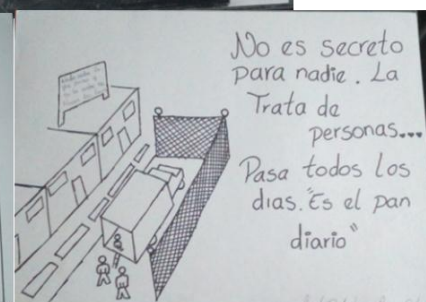 No es secreto
para nadie. La
Trata de
personas...
Pasa todos los
dias. "Es el pan
diario"